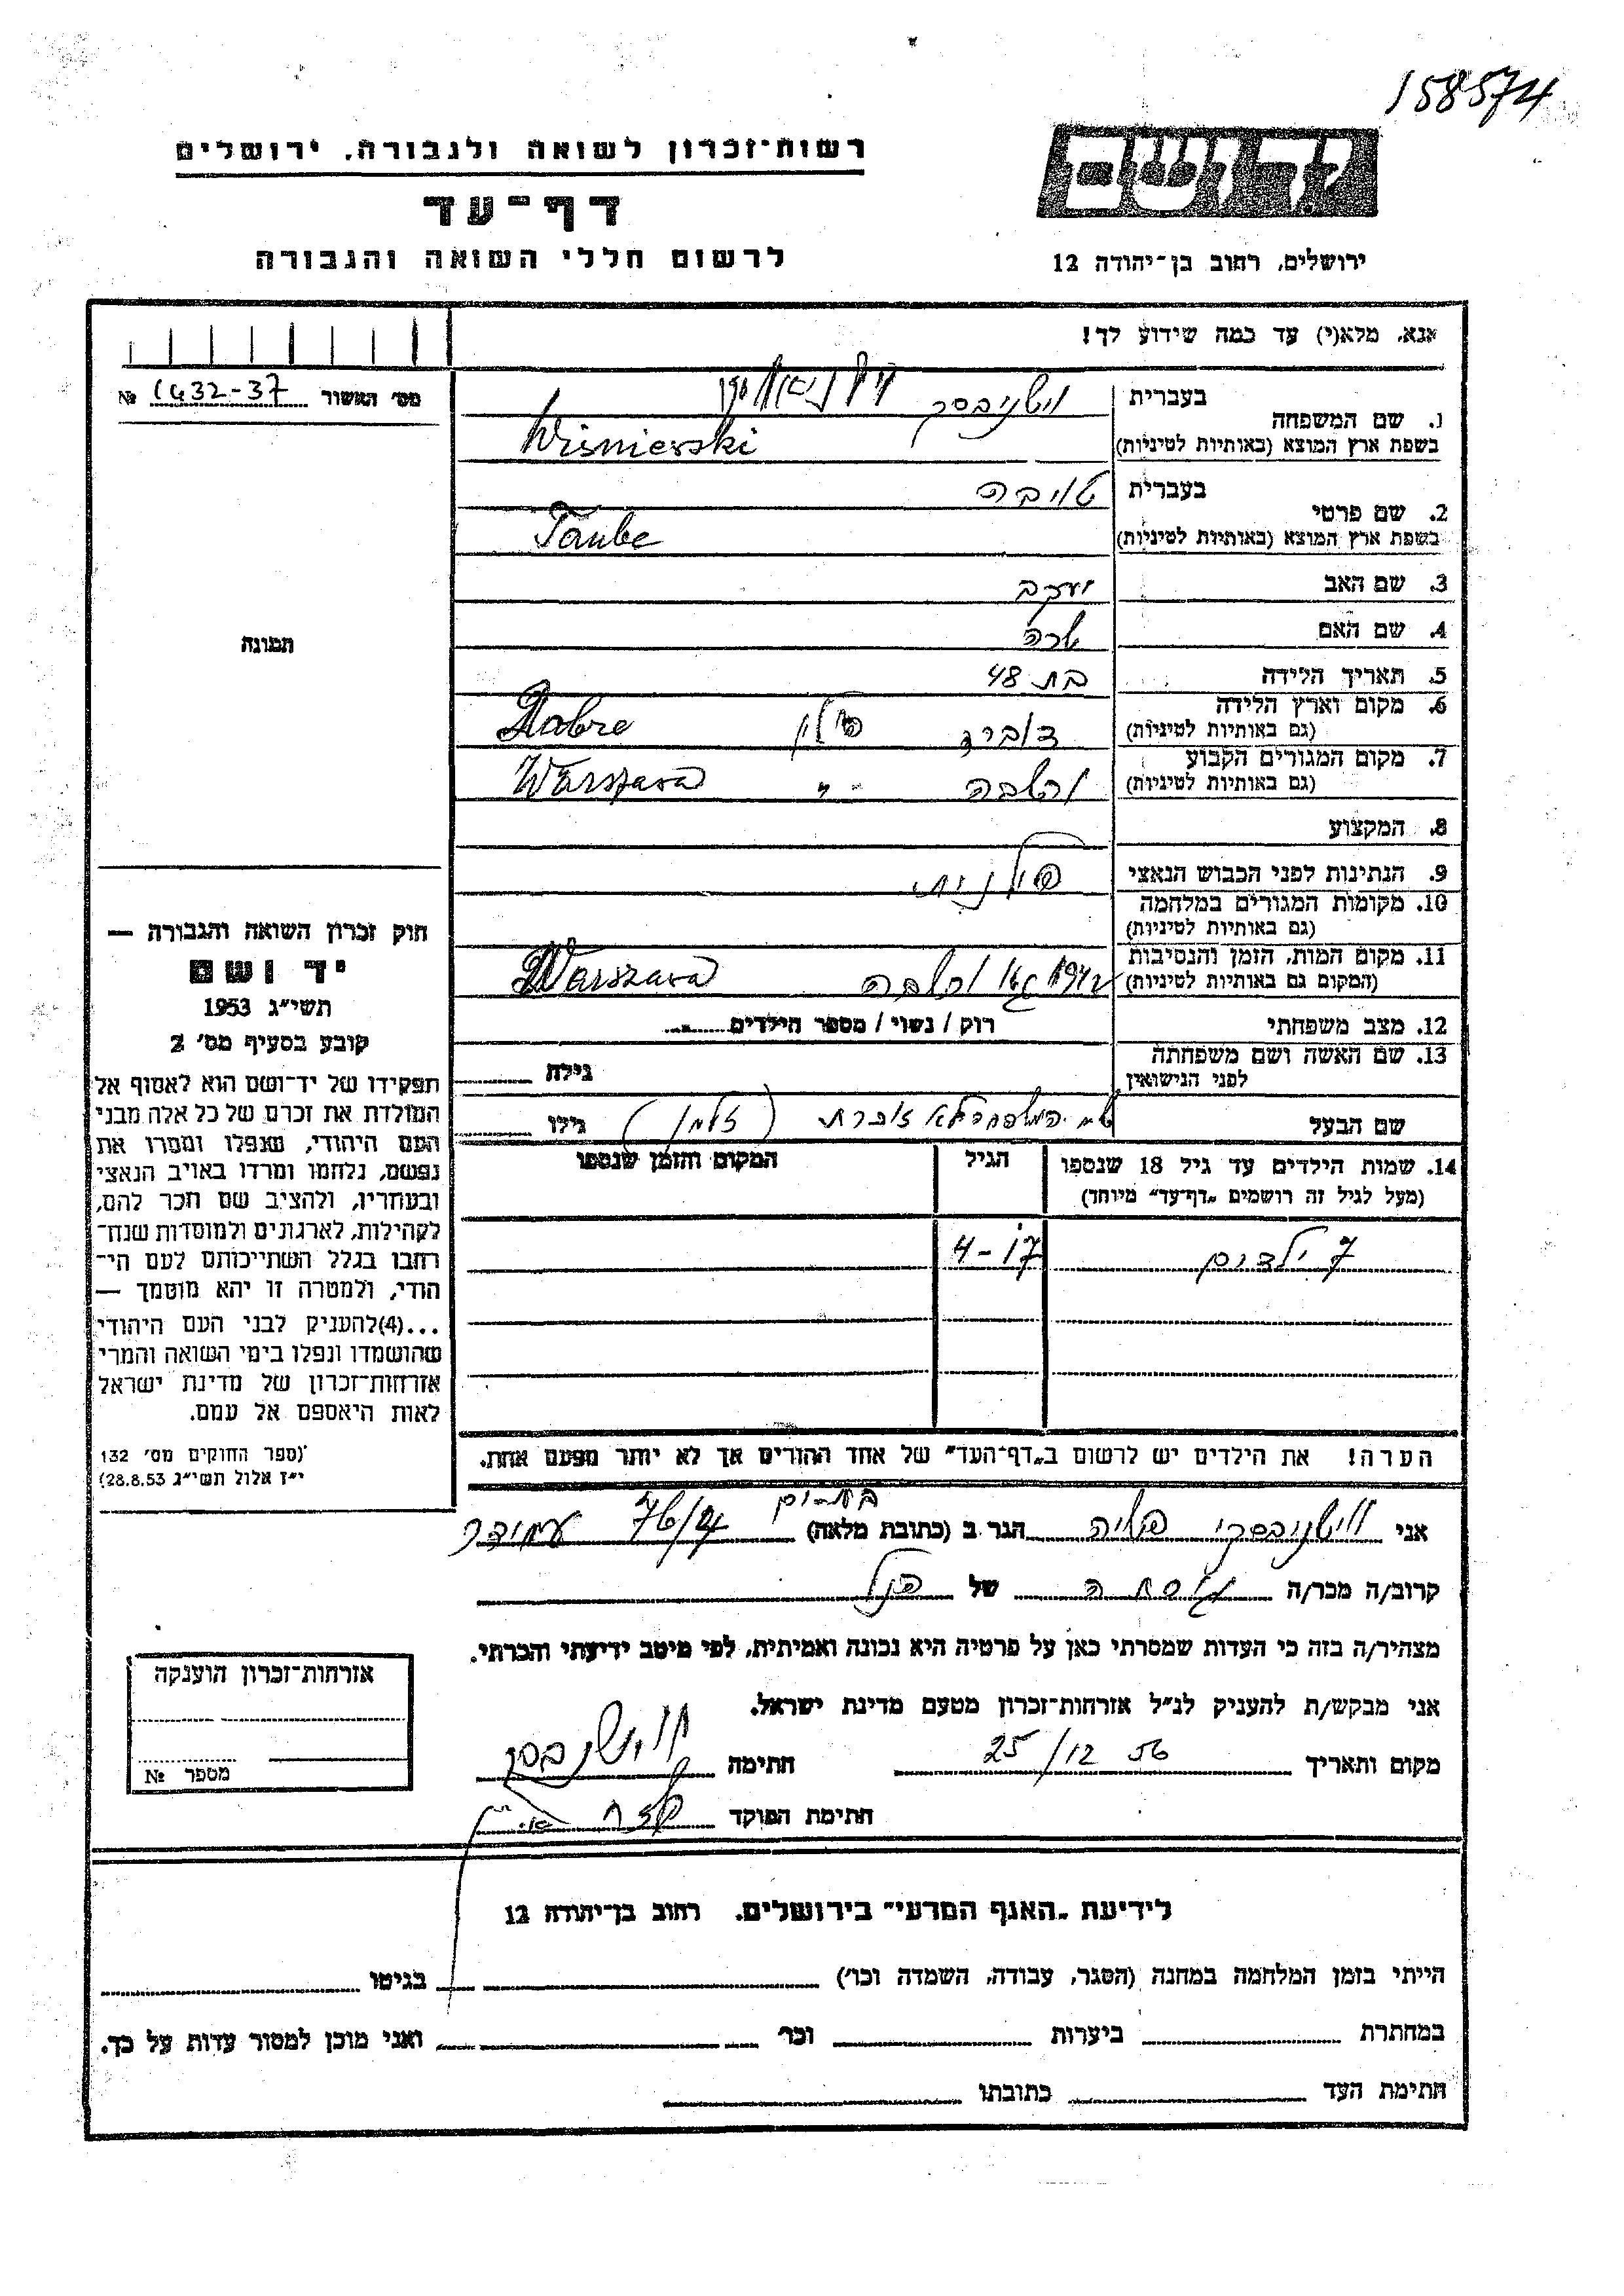 158574
רשות-זכרון לשואה ולגבורה, ירושלים
יד ושם
דף-עד
לרשום חללי השואה והגבורה
ירושלים, רחוב בן-יהודה 12
אנא, מלא(י) עד כמה שידוע לך!
מס' האשור 1432-37 №
1. שם המשפחה
בעברית
בשפת ארץ המוצא (באותיות לטיניות)
Wisnierski
2. שם פרטי
בעברית טויבה
בשפת ארץ המוצא (באותיות לטיניות)
Taube
3. שם האב יעקב
4. שם האם שרה
תמונה
5. תאריך הלידה בת 48
6. מקום וארץ הלידה
(גם באותיות לטיניות) דוברה פולין Dobre
7. מקום המגורים הקבוע
(גם באותיות לטיניות) ורשבה -"- Warszawa
8. המקצוע
9. הנתינות לפני הכבוש הנאצי פולנית
10. מקומות המגורים במלחמה
(גם באותיות לטיניות)
11. מקום המות, הזמן והנסיבות
(המקום גם באותיות לטיניות) גטו ורשבה Warszawa
12. מצב משפחתי רוק / נשוי / מספר הילדים
13. שם האשה ושם משפחתה
לפני הנישואין גילה
שם הבעל שם המשפחה לא זוכרת (זלמן) גילו
14. שמות הילדים עד גיל 18 שנספו
(מעל לגיל זה רושמים "דף-עד" מיוחד)
הגיל
המקום והזמן שנספו
7 ילדים 4-17
הערה! את הילדים יש לרשום ב"דף-העד" של אחד ההורים אך לא יותר מפעם אחת.
חוק זכרון השואה והגבורה —
יד ושם
תשי"ג 1953
קובע בסעיף מס' 2
תפקידו של יד-ושם הוא לאסוף אל
המולדת את זכרם של כל אלה מבני
העם היהודי, שנפלו ומסרו את
נפשם, נלחמו ומרדו באויב הנאצי
ובעוזריו, ולהציב שם וזכר להם,
לקהילות, לארגונים ולמוסדות שנח-
רבו בגלל השתייכותם לעם הי-
הודי, ולמטרה זו יהא מוסמך —
...(4)להעניק לבני העם היהודי
שהושמדו ונפלו בימי השואה והמרי
אזרחות-זכרון של מדינת ישראל
לאות היאספם אל עמם.
(ספר החוקים מס' 132
י"ז אלול תשי"ג 28.8.53)
אני וישניבסקי הגר ב (כתובת מלאה) בת-ים 76/4 עמידר
קרוב/ה מכר/ה גיסתה של הנ"ל
מצהיר/ה בזה כי העדות שמסרתי כאן על פרטיה היא נכונה ואמיתית, לפי מיטב ידיעתי והכרתי.
אני מבקש/ת להעניק לנ"ל אזרחות-זכרון מטעם מדינת ישראל.
מקום ותאריך 25/12 56 חתימה
חתימת הפוקד
אזרחות-זכרון הוענקה
מספר №
לידיעת "האגף המדעי" בירושלים, רחוב בן-יהודה 12
הייתי בזמן המלחמה במחנה (הסגר, עבודה, השמדה וכו') בגיטו
במחתרת ביערות וכו' ואני מוכן למסור עדות על כך.
חתימת העד כתובתו